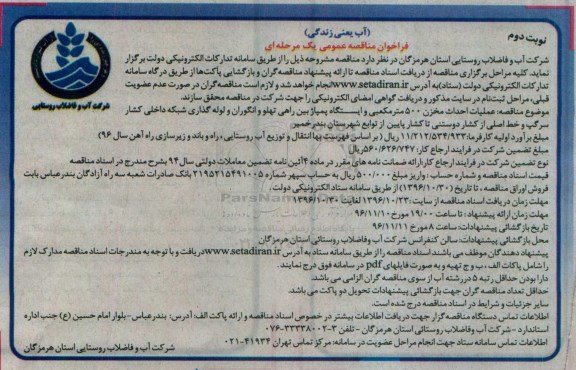 (آب یعنی زندگی)
نوبت دوم
فراخوان مناقصه عمومی یک مرحله ای
شرکت آب و فاضلاب روستایی
شرکت آب و فاضلاب روستایی استان هرمزگان در نظر دارد مناقصه مشروحه ذیل را از طریق سامانه تدارکات الکترونیکی دولت برگزار
نماید. کلیه مراحل برگزاری مناقصه از دریافت اسناد مناقصه تا ارائه پیشنهاد مناقصه گران و بازگشایی پاکت‌ها از طریق درگاه سامانه
تدارکات الکترونیکی دولت (ستاد) به آدرس www.setadiran.ir انجام خواهد شد و لازم است مناقصه گران در صورت عدم عضویت
قبلی، مراحل ثبت‌نام در سایت مذکور و دریافت گواهی امضای الکترونیکی را جهت شرکت در مناقصه محقق سازند.
موضوع مناقصه: عملیات احداث مخزن ۵۰۰ مترمکعبی و ایستگاه پمپاژ بین راهی تهلو و انگوران و لوله گذاری شبکه داخلی کشار
سرگپ و خط اصلی از کشار دوستنی تا کشار پایین از توابع شهرستان بندرخمیر
مبلغ برآورد اولیه کارفرما: ۱۱/۲۱۲/۵۳۴/۹۳۳ ریال (بر اساس فهرست بها انتقال و توزیع آب روستایی، راه و باند و زیرسازی راه آهن سال ۹۶)
مبلغ تضمین شرکت در فرایند ارجاع کار: ۵۶۰/۶۲۶/۷۴۷ ریال
نوع تضمین شرکت در فرایند ارجاع کار: ارائه ضمانت نامه های مقرر در ماده ۴ آئین نامه تضمین معاملات دولتی سال ۹۴ بشرح مندرج در اسناد مناقصه
قیمت اسناد مناقصه و شماره حساب: واریز مبلغ ۵۰۰/۰۰۰ ریال به حساب سپهر شماره ۲۱۹۵۲۱۵۴۹۱۰۰۵ بانک صادرات شعبه سه راه آزادگان بندرعباس بابت
فروش اوراق مناقصه، تا تاریخ (۱۳۹۶/۱۰/۳۰) از طریق سامانه ستاد الکترونیکی دولت.
مهلت زمان دریافت اسناد مناقصه از سایت: ۱۳۹۶/۱۰/۲۳ لغایت ۱۳۹۶/۱۰/۳۰
مهلت زمان ارائه پیشنهاد: تا ساعت ۱۹/۰۰ مورخ ۹۶/۱۱/۱۰
تاریخ بازگشائی پیشنهادات: ساعت ۸ مورخ ۹۶/۱۱/۱۱
محل بازگشائی پیشنهادات: سالن کنفرانس شرکت آب وفاضلاب روستائی استان هرمزگان
پیشنهاد دهندگان موظف می باشند اسناد مناقصه را از طریق سامانه ستاد به آدرس www.setadiran.ir دریافت و با توجه به مندرجات اسناد مناقصه مدارک لازم
را شامل پاکات الف، ب و ج تهیه و به صورت فایلهای pdf در سامانه فوق درج نمایند.
دارا بودن حداقل رتبه ۵ در رشته آب از سوی مناقصه گران الزامی می باشد.
حداقل تعداد مناقصه گران جهت بازگشائی پیشنهادات تحویل دو پاکت می باشد.
سایر جزئیات و شرایط در اسناد مناقصه درج شده است.
اطلاعات تماس دستگاه مناقصه گزار جهت دریافت اطلاعات بیشتر در خصوص اسناد مناقصه و ارائه پاکت الف: آدرس: بندرعباس-بلوار امام حسین (ع) جنب اداره
استاندارد - شرکت آب وفاضلاب روستائی استان هرمزگان - تلفن ۳-۳۳۳۳۸۰۰۲-۰۷۶
اطلاعات تماس سامانه ستاد جهت انجام مراحل عضویت در سامانه: مرکز تماس تهران ۴۱۹۳۴-۰۲۱
شرکت آب و فاضلاب روستایی استان هرمزگان